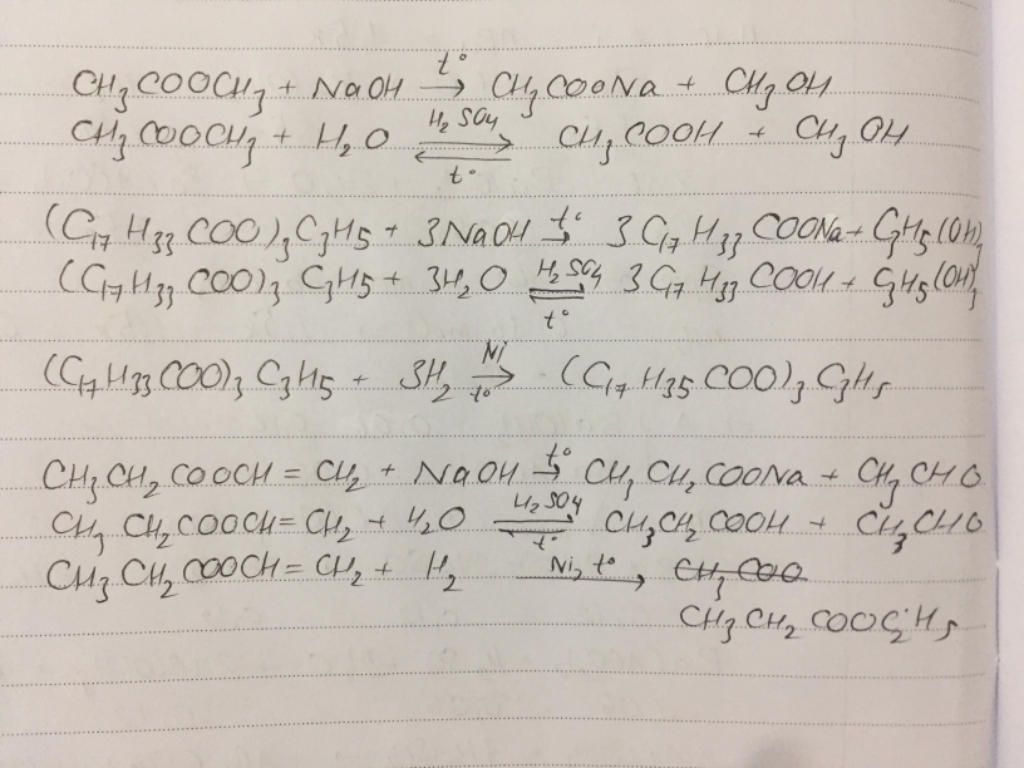 CH₃COOCH₃ + NaOH →(t°) CH₃COONa + CH₃OH
CH₃COOCH₃ + H₂O ⇌(H₂SO₄, t°) CH₃COOH + CH₃OH
(C₁₇H₃₃COO)₃C₃H₅ + 3NaOH →(t°) 3C₁₇H₃₃COONa + C₃H₅(OH)₃
(C₁₇H₃₃COO)₃C₃H₅ + 3H₂O ⇌(H₂SO₄, t°) 3C₁₇H₃₃COOH + C₃H₅(OH)₃
(C₁₇H₃₃COO)₃C₃H₅ + 3H₂ →(Ni, t°) (C₁₇H₃₅COO)₃C₃H₅
CH₃CH₂COOCH=CH₂ + NaOH →(t°) CH₃CH₂COONa + CH₃CHO
CH₃CH₂COOCH=CH₂ + H₂O ⇌(H₂SO₄, t°) CH₃CH₂COOH + CH₃CHO
CH₃CH₂COOCH=CH₂ + H₂ →(Ni, t°) CH₃COO
CH₃CH₂COOC₂H₅